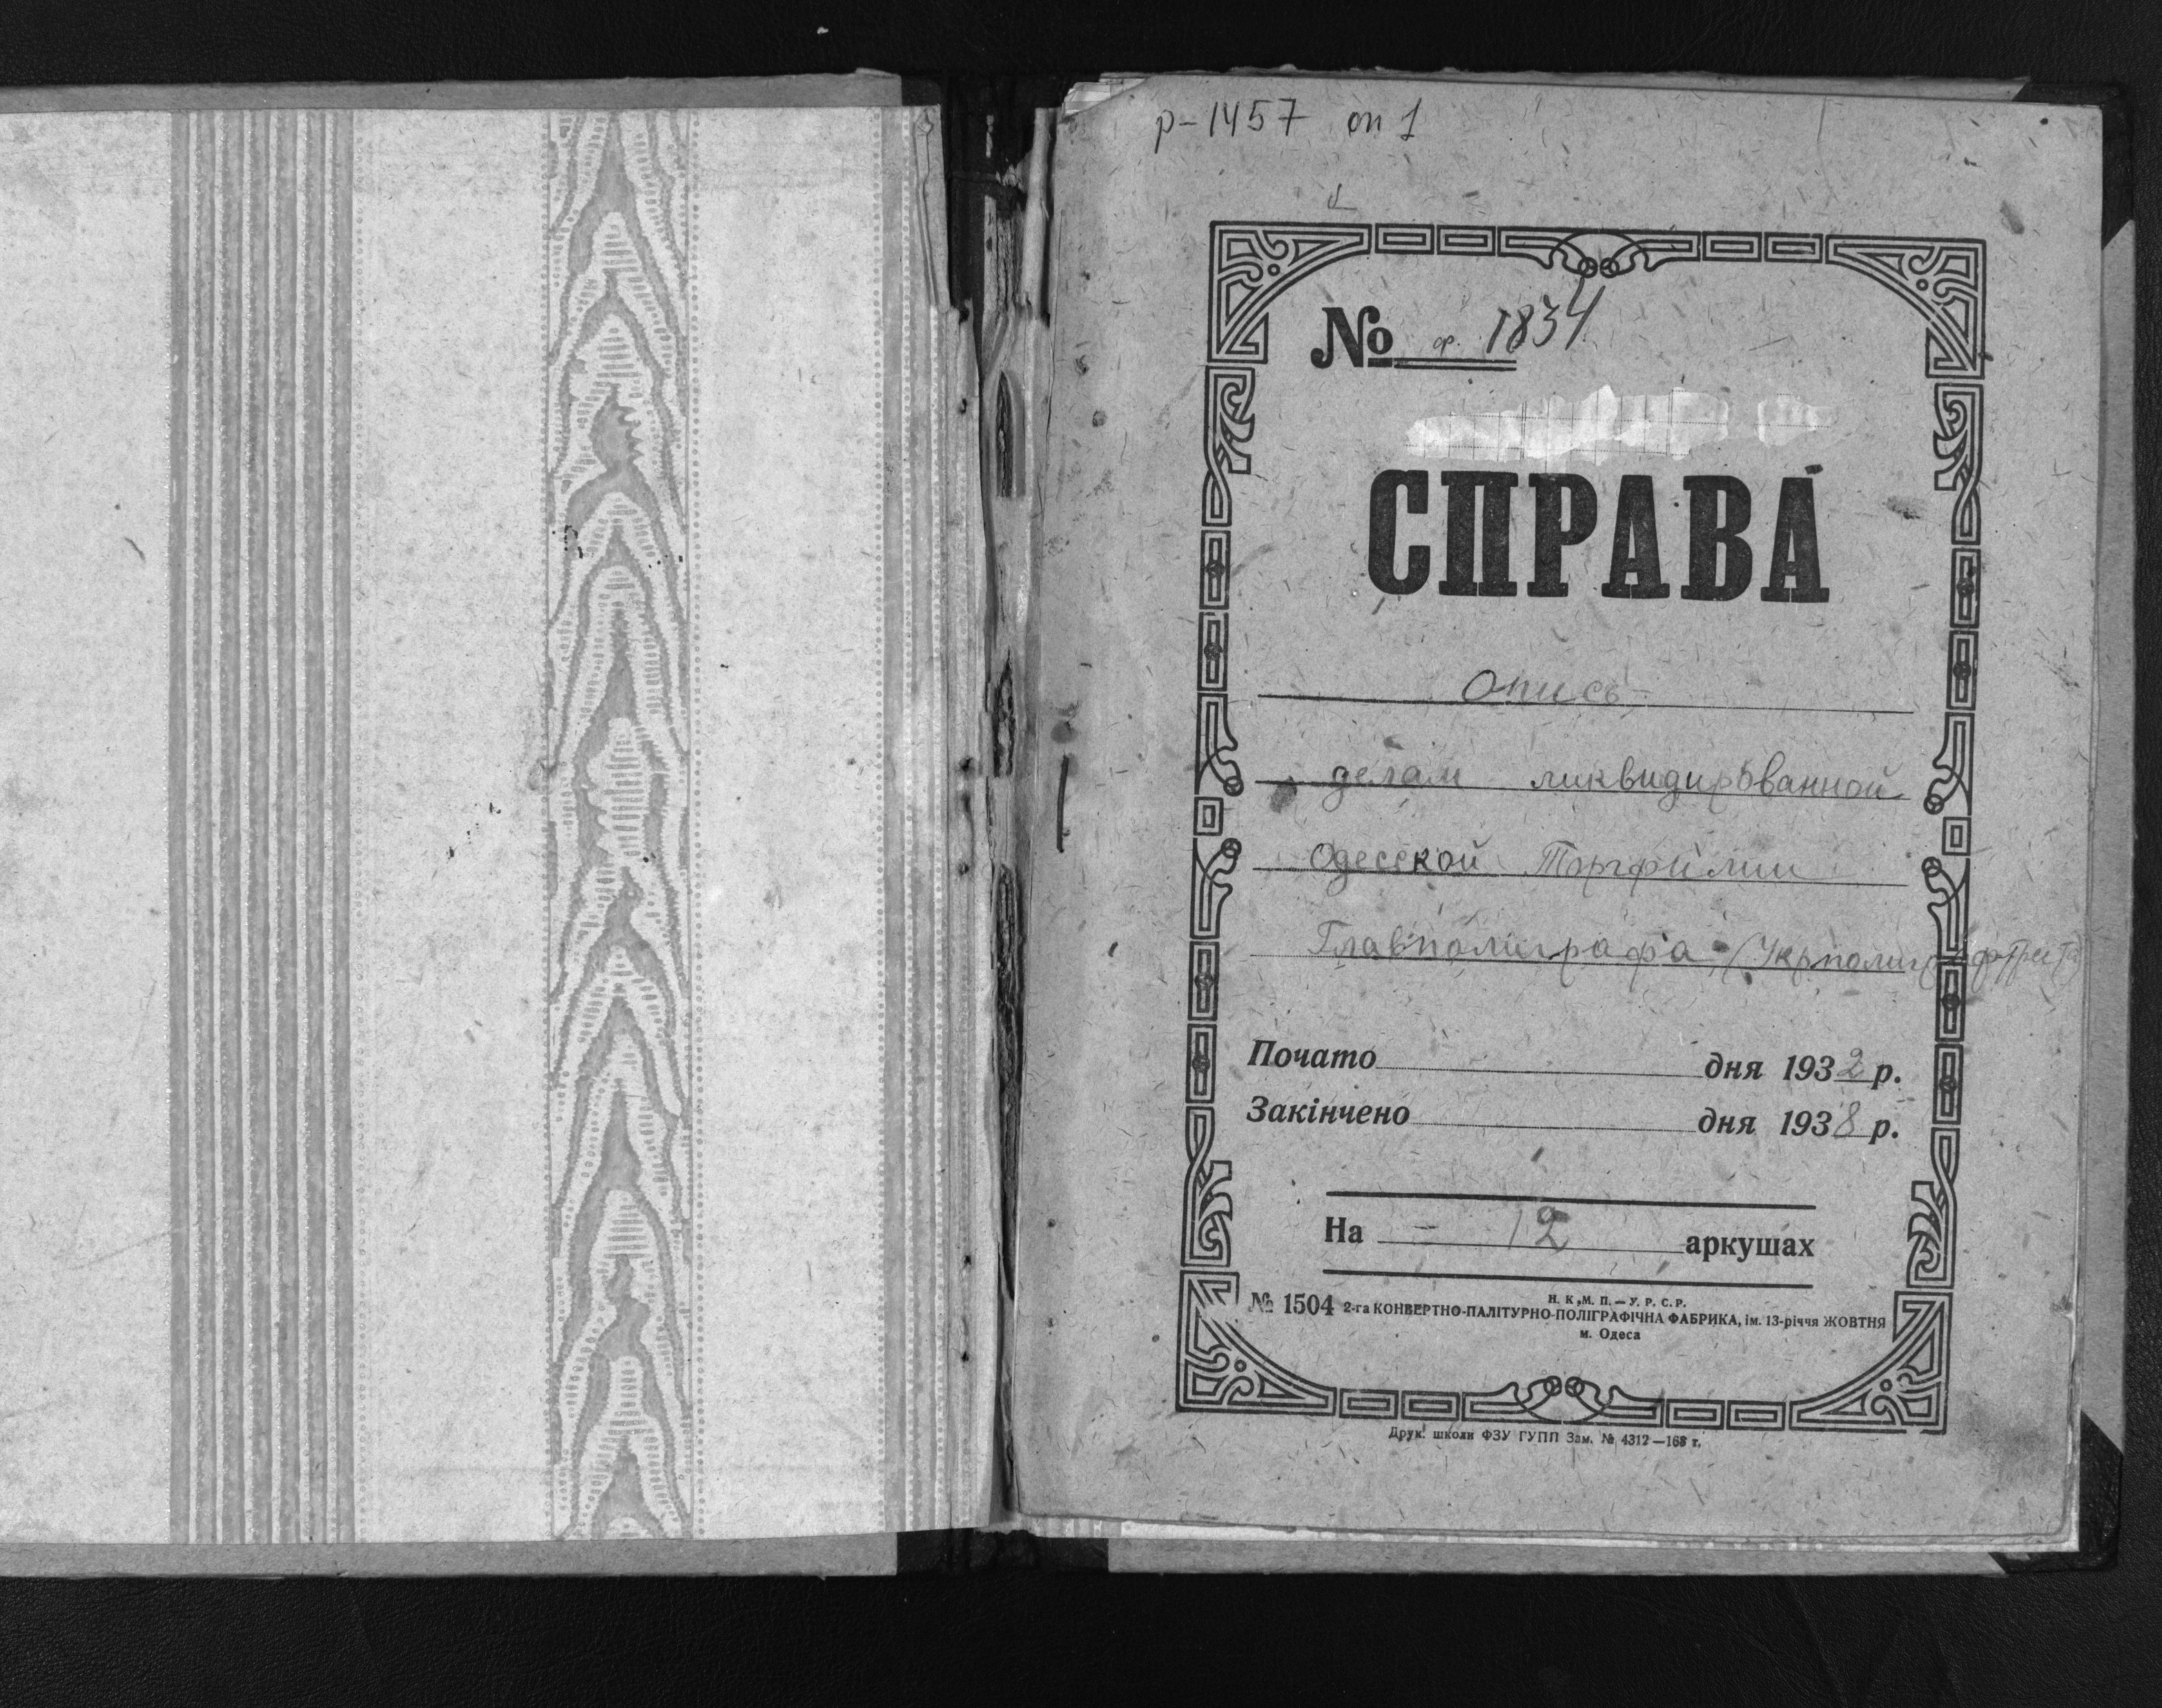 р-1457 оп 1
№ ф. 1834
СПРАВА
Опись
делам ликвидированной
Одесской Торгфилии
Главполиграфа (Укрполиграфтреста)
Почато дня 1932 р.
Закінчено дня 1938 р.
На - 12 аркушах
Н. К. М. П. — У. Р. С. Р.
№ 1504 2-га КОНВЕРТНО-ПАЛІТУРНО-ПОЛІГРАФІЧНА ФАБРИКА, ім. 13-річчя ЖОВТНЯ
м. Одеса
Друк. школи ФЗУ ГУПП Зам. № 4312—168 т.